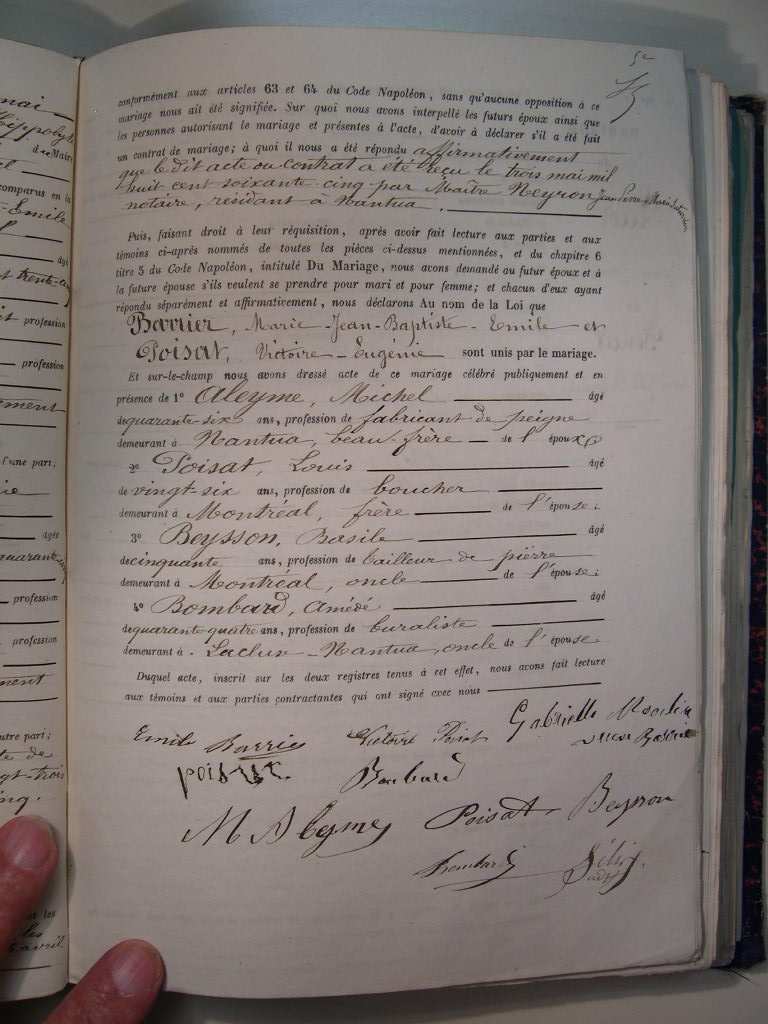 52
conformément aux articles 63 et 64 du Code Napoléon, sans qu'aucune opposition à ce
mariage nous ait été signifiée. Sur quoi nous avons interpellé les futurs époux ainsi que
les personnes autorisant le mariage et présentes à l'acte, d'avoir à déclarer s'il a été fait
un contrat de mariage; à quoi il nous a été répondu affirmativement
que le dit acte ou contrat a été reçu le trois mai mil
huit cent soixante cinq par Maître Neyron Jean Pierre Marie
notaire, résidant à Nantua.
Puis, faisant droit à leur réquisition, après avoir fait lecture aux parties et aux
témoins ci-après nommés de toutes les pièces ci-dessus mentionnées, et du chapitre 6
titre 5 du Code Napoléon, intitulé Du Mariage, nous avons demandé au futur époux et à
la future épouse s'ils veulent se prendre pour mari et pour femme; et chacun d'eux ayant
répondu séparément et affirmativement, nous déclarons Au nom de la Loi que
Barrier, Marie-Jean-Baptiste-Emile et
Poisat, Victoire-Eugénie sont unis par le mariage.
Et sur-le-champ nous avons dressé acte de ce mariage célébré publiquement et en
présence de 1° Aleyme, Michel âgé
de quarante-six ans, profession de fabricant de peigne
demeurant à Nantua, beau-frère de l'époux
2° Poisat, Louis âgé
de vingt-six ans, profession de boucher
demeurant à Montréal, frère de l'épouse;
3° Beysson, Basile âgé
de cinquante ans, profession de tailleur de pierre
demeurant à Montréal, oncle de l'épouse;
4° Bombard, Amédé âgé
de quarante quatre ans, profession de buraliste
demeurant à Lacluse-Nantua, oncle de l'épouse
Duquel acte, inscrit sur les deux registres tenus à cet effet, nous avons fait lecture
aux témoins et aux parties contractantes qui ont signé avec nous
Emile Barrier Victoire Poisat Gabrielle Moulin
Poisat Bombard
M Aleyme Poisat Beysson
Bombard